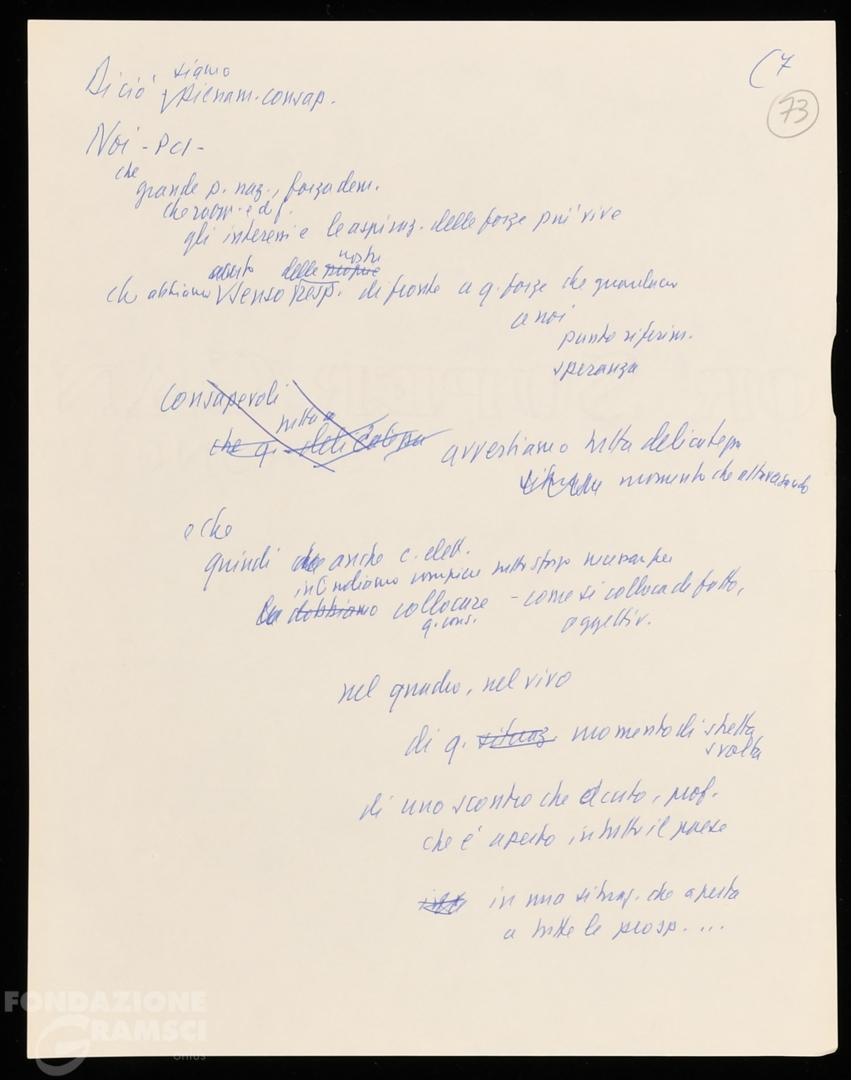 (7
73
siamo
Di ciò pienam. consap.
Noi - PCI -
che
grande p. naz., forza dem.
gli interessi e le aspiraz. delle forze più vive
acuto delle nostre
che abbiamo senso resp. di fronte a q. forze che guardano
a noi
punto riferim.
speranza
Consapevoli
tutta a
che q. delicatezza avvertiamo tutta delicatezza
momento che attraversando
e che
quindi che anche c. elett.
intendiamo compiere tutto sforzo necess. per
la dobbiamo collocare - come si colloca di fatto,
q. cons. oggettiv.
nel quadro, nel vivo
di q. situaz. momento di stretta
svolta
di uno scontro che acuto, prof.
che è aperto in tutto il paese
in una situaz. che aperta
a tutte le prosp. ...
FONDAZIONE
GRAMSCI
onlus